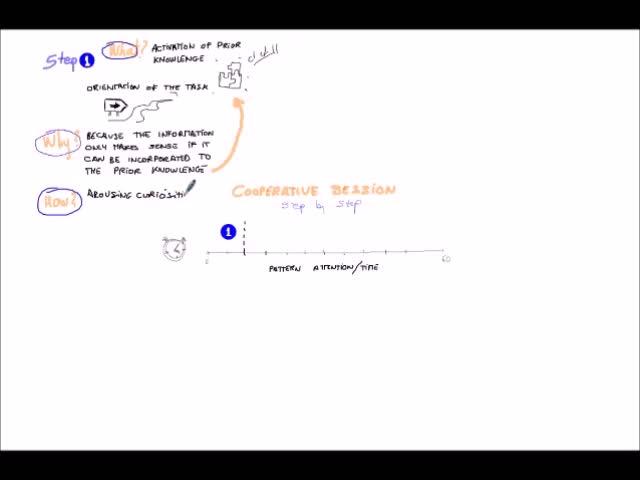 Step 1 What? ACTIVATION OF PRIOR
KNOWLEDGE
ORIENTATION OF THE TASK
Why? BECAUSE THE INFORMATION
ONLY MAKES SENSE IF IT
CAN BE INCORPORATED TO
THE PRIOR KNOWLENGE
HOW? AROUSING CURIOSITI
COOPERATIVE SESSION
Step by Step
1
0
60
PATTERN ATTENTION/TIME